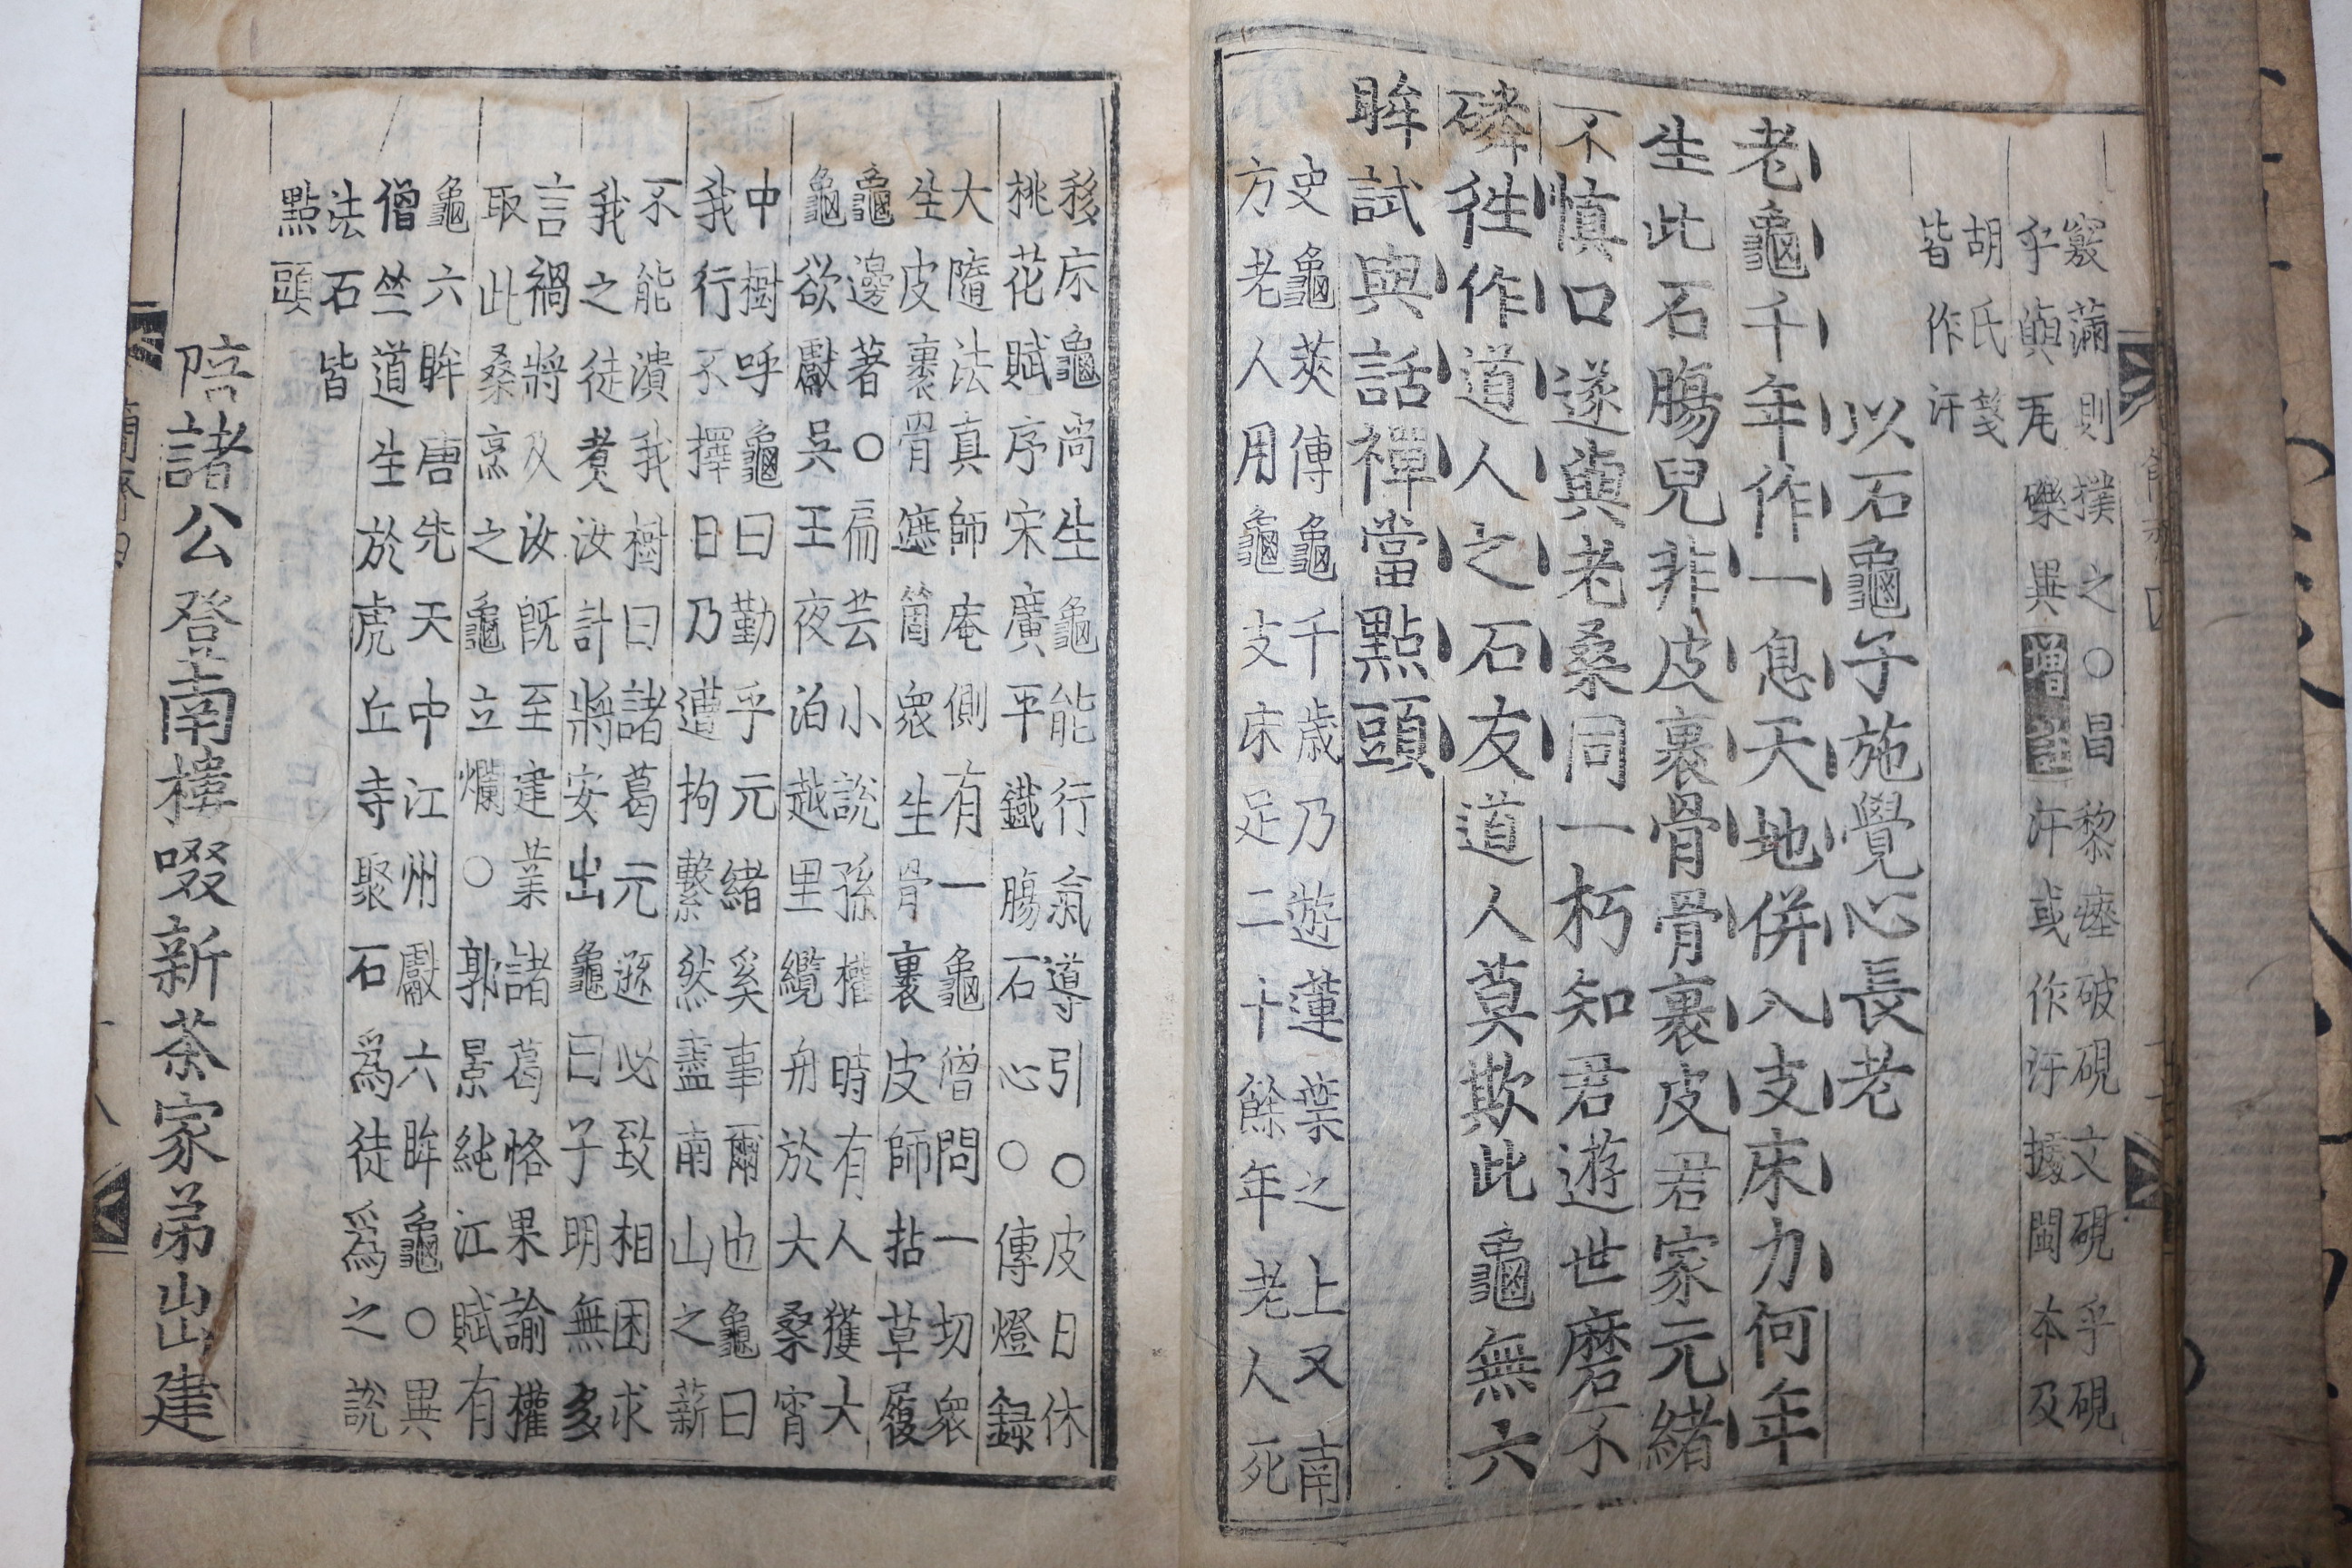 竅滿則撲之○昌黎瘞破硯文硯乎硯
乎與瓦礫異增註汙或作汚據閩本及
胡氏箋
皆作汙
以石龜子施覺心長老
老龜千年作一息天地倂入支床力何年
生此石腸兒非皮裹骨骨裹皮君家元緖
不愼口遂與老桑同一朽知君遊世磨不
磷徃作道人之石友道人莫欺此龜無六
眸試與話禪當點頭
史龜莢傳龜千歲乃遊蓮葉之上又南
方老人用龜支床足二十餘年老人死
移床龜尚生龜能行氣導引○皮日休
桃花賦序宋廣平鐵膓石心○傳燈録
大隨法真師庵側有一龜僧問一切衆
生皮裹骨遮箇衆生骨裹皮師拈草履
龜邊著○扁芸小說孫權時有人獲大
龜欲獻吳王夜泊越里纜舟於大桑宵
中樹呼龜曰勤乎元緖奚事爾也龜曰
我行不擇日乃遭拘繫然盡南山之薪
不能潰我樹曰諸葛元遜必致相困求
我之徒煑汝計將安出龜曰子明無多
言禍將及汝旣至建業諸葛恪果諭權
取此桑烹之龜立爛○郭景純江賦有
龜六眸唐先天中江州獻六眸龜○異
僧竺道生於虎丘寺聚石爲徒爲之說
法石皆
點頭
陪諸公登南樓啜新茶家弟出建